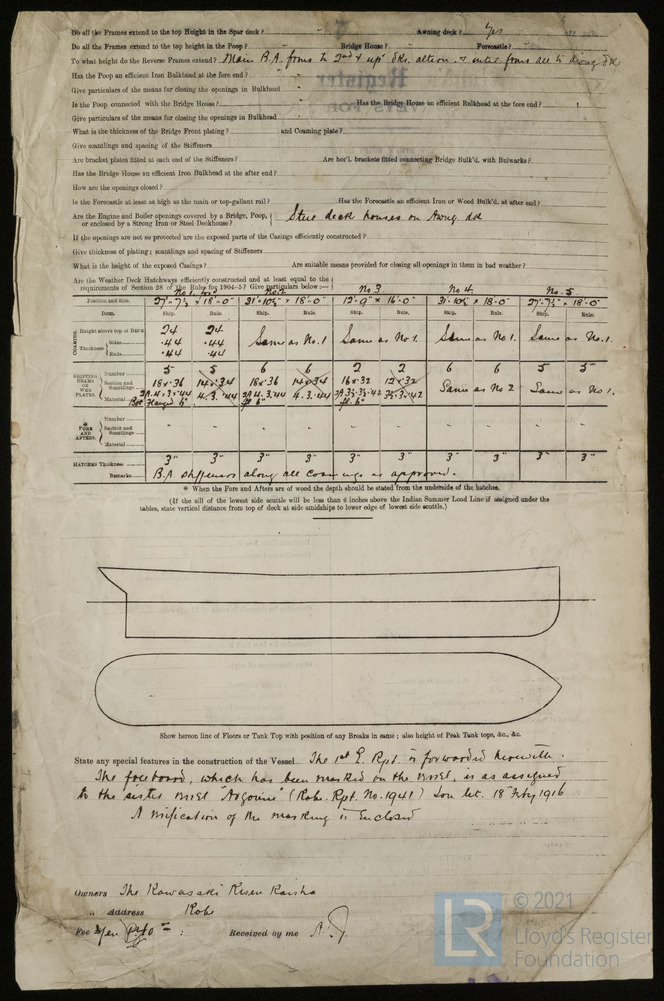 Do all the Frames extend to the top Height in the Spar deck? Awning deck? Yes
Do all the Frames extend to the top height in the Poop? Bridge House? Forecastle?
To what height do the Reverse Frames extend? Main B.A. frms to 2nd & upr dks. altern. & inter frms all to Awng dk
Has the Poop an efficient Iron Bulkhead at the fore end?
Give particulars of the means for closing the openings in Bulkhead
Is the Poop connected with the Bridge House? Has the Bridge House an efficient Bulkhead at the fore end?
Give particulars of the means for closing the openings in Bulkhead
What is the thickness of the Bridge Front plating? and Coaming plate?
Give scantlings and spacing of the Stiffeners
Are bracket plates fitted at each end of the Stiffeners? Are hor'l. brackets fitted connecting Bridge Bulk'd. with Bulwarks?
Has the Bridge House an efficient Iron Bulkhead at the after end?
How are the openings closed?
Is the Forecastle at least as high as the main or top-gallant rail? Has the Forecastle an efficient Iron or Wood Bulk'd. at after end?
Are the Engine and Boiler openings covered by a Bridge, Poop, or enclosed by a Strong Iron or Steel Deckhouse? Steel deck houses on Awng. dk
If the openings are not so protected are the exposed parts of the Casings efficiently constructed?
Give thickness of plating; scantlings and spacing of Stiffeners
What is the height of the exposed Casings? Are suitable means provided for closing all openings in them in bad weather?
Are the Weather Deck Hatchways efficiently constructed and at least equal to the requirements of Section 28 of the Rules for 1904-5? Give particulars below:—
No 1 No 2 No 3 No 4 No 5
Position and Size. 27'-7½" × 18'-0" 31'-10½" × 18'-0" 12'-9" × 16'-0" 31'-10½" × 18'-0" 27'-7½" × 18'-0"
Item. Ship. Rule. Ship. Rule. Ship. Rule. Ship. Rule. Ship. Rule.
COAMING. Height above top of DECK 24 24
Thickness Sides .44 .44 Same as No. 1 Same as No 1. Same as No 1. Same as No. 1.
Ends .44 .44
SHIFTING BEAMS OR WEB PLATES. Number 5 5 6 6 2 2 6 6 5 5
Section and Scantlings 18 × .36 14 × .34 18 × .36 14 × .34 16 × .32 12 × .32 Same as No 2 Same as No 1.
Material 2A. 4.3 × .44 4.3.44 2A 4.3.44 4.3.44 2A 3½.3½.42
FORE AND AFTERS. Number
Section and Scantlings
Material
HATCHES Thickness 3" 3" 3" 3" 3" 3" 3" 3" 3" 3"
Remarks B.A stiffeners along all coamings as approved.
* When the Fore and Afters are of wood the depth should be stated from the underside of the hatches.
(If the sill of the lowest side scuttle will be less than 6 inches above the Indian Summer Load Line if assigned under the
tables, state vertical distance from top of deck at side amidships to lower edge of lowest side scuttle.)
Show hereon line of Floors or Tank Top with position of any Breaks in same; also height of Peak Tank tops, &c., &c.
State any special features in the construction of the Vessel The 1st E. Rpt. is forwarded herewith.
The freeboard, which has been marked on the vessel, is as assigned
to the sister vessel "Argonne" (Kobe. Rpt. No. 1941) Lon let. 18 Feby 1916
A verification of the marking is Enclosed
Owners The Kawasaki Kisen Kaisha
" Address Kobe
Fee Yen : Received by me
© 2021
Lloyd's Register
Foundation
LR